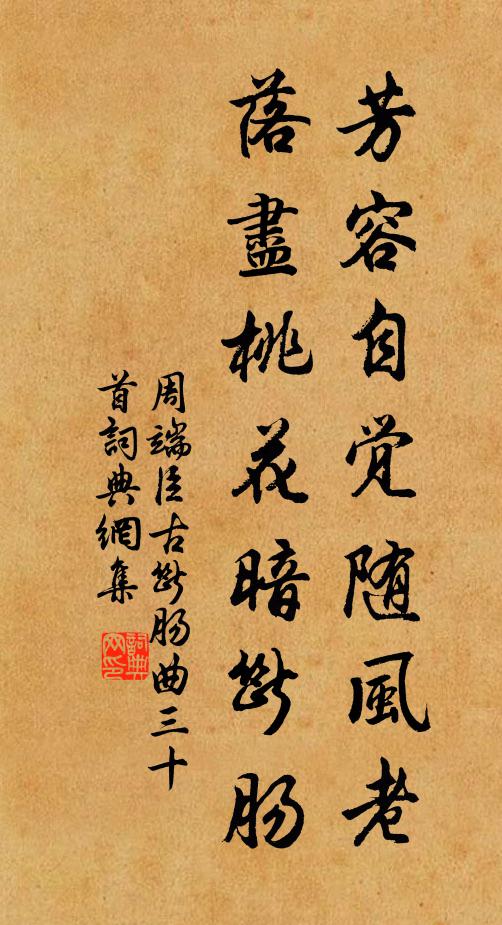 芳容自觉随風老
落盡桃花暗斷肠
周端臣古斷肠曲三十
首詞典網集
詞典網印